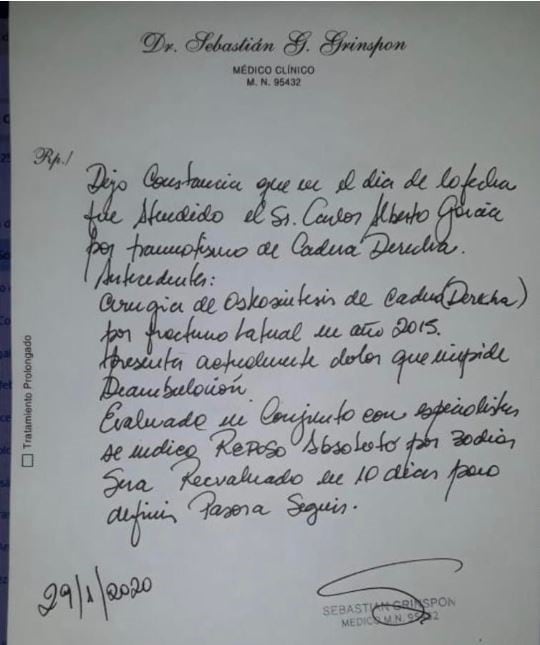 Dr. Sebastián G. Grinspon
MÉDICO CLÍNICO
M. N. 95432
Rp./
Dejo Constancia que en el dia de la fecha
fue Atendido el Sr. Carlos Alberto García
por traumatismo de Cadera Derecha.
Antecedentes:
Cirugia de Osteosintesis de Cadera (Derecha)
por fractura lateral en año 2015.
Presenta actualmente dolor que impide
Deambulación.
Evaluado en Conjunto con especialistas
se indica Reposo Absoluto por 30 dias
Sera Reevaluado en 10 dias para
definir a Seguir.
Tratamiento Prolongado
29/1/2020
SEBASTIAN GRINSPON
MEDICO M.N.